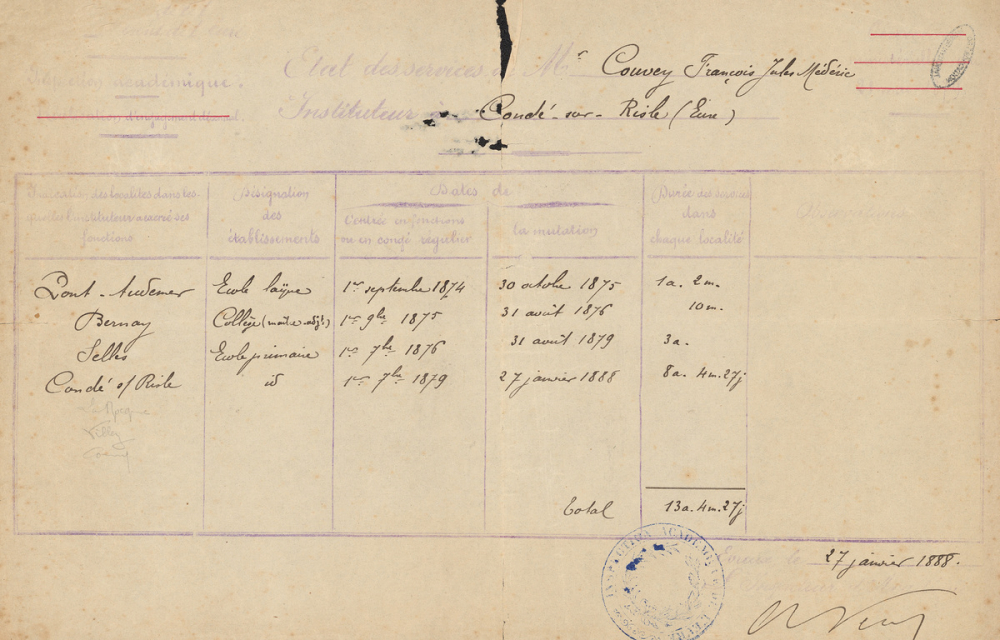 Inspection académique.
Etat des services de Mr Couvey François Jules Médéric
Instituteur à Condé-sur-Risle (Eure)
Indication des localités dans les-
quelles l'instituteur a exercé ses
fonctions
Désignation
des
établissements
Dates de
l'entrée en fonctions
ou en congé régulier
la mutation
Durée des services
dans
chaque localité
Observations
Pont-Audemer Ecole laïque 1er septembre 1874 30 octobre 1875 1a. 2m.
Bernay Collège (maître adjt) 1er 9bre 1875 31 août 1876 10m.
Selles Ecole primaire 1er 7bre 1876 31 août 1879 3a.
Condé s/ Risle id 1er 7bre 1879 27 janvier 1888 8a. 4m. 27j
Total 13a. 4m. 27j
INSPECTION ACADÉMIQUE DE L'EURE
Evreux le 27 janvier 1888.